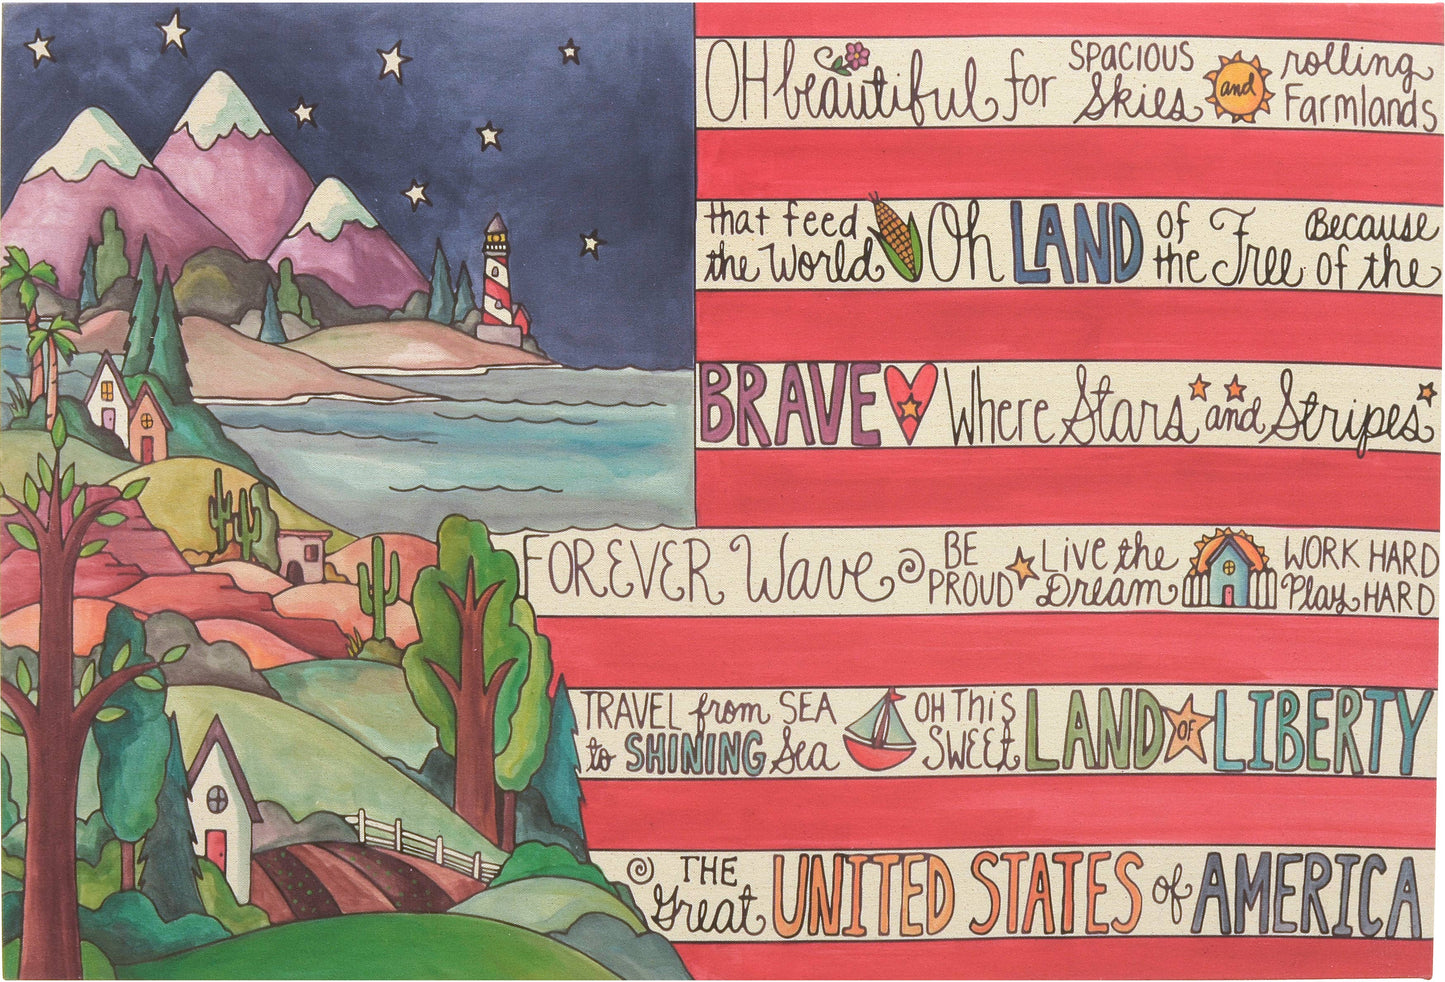 OH beautiful for SPACIOUS Skies and rolling Farmlands
that feed the World Oh LAND of the Free Because of the
BRAVE Where Stars and Stripes
FOREVER Wave BE PROUD Live the Dream WORK HARD Play HARD
TRAVEL from SEA to SHINING Sea OH THIS SWEET LAND OF LIBERTY
THE Great UNITED STATES of AMERICA